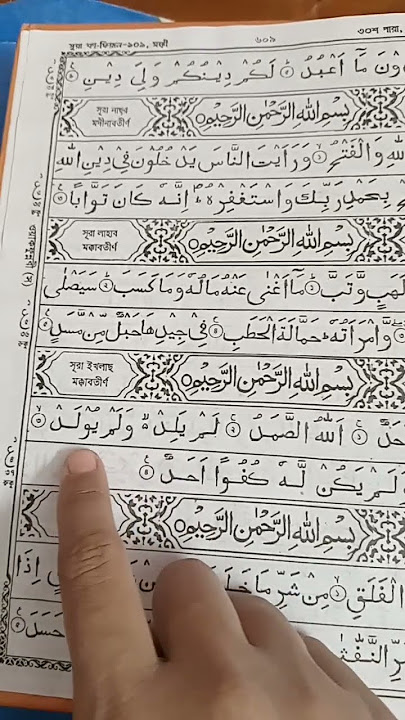 সূরা কা-ফিরূন-১০৯, মক্কী ৬০৯ ৩০শ পারা,
مَاۤ اَعْبُدُ لَكُمْ دِيْنُكُمْ وَلِيَ دِيْنِ
সূরা নাছর মদীনাবতীর্ণ بِسْمِ اللهِ الرَّحْمٰنِ الرَّحِيْمِ
وَالْفَتْحُ وَرَاَيْتَ النَّاسَ يَدْخُلُوْنَ فِيْ دِيْنِ اللهِ
بِحَمْدِ رَبِّكَ وَاسْتَغْفِرْهُ اِنَّهٗ كَانَ تَوَّابًا
সূরা লাহাব মক্কাবতীর্ণ بِسْمِ اللهِ الرَّحْمٰنِ الرَّحِيْمِ
لَهَبٍ وَّتَبَّ مَاۤ اَغْنٰى عَنْهُ مَالُهٗ وَمَا كَسَبَ سَيَصْلٰى
وَّامْرَاَتُهٗ حَمَّالَةَ الْحَطَبِ فِيْ جِيْدِهَا حَبْلٌ مِّنْ مَّسَدٍ
সূরা ইখলাছ মক্কাবতীর্ণ بِسْمِ اللهِ الرَّحْمٰنِ الرَّحِيْمِ
اَللهُ الصَّمَدُ لَمْ يَلِدْ وَلَمْ يُوْلَدْ
وَلَمْ يَكُنْ لَّهٗ كُفُوًا اَحَدٌ
بِسْمِ اللهِ الرَّحْمٰنِ الرَّحِيْمِ
الْفَلَقِ مِنْ شَرِّ مَا اِذَا
حَسَدَ